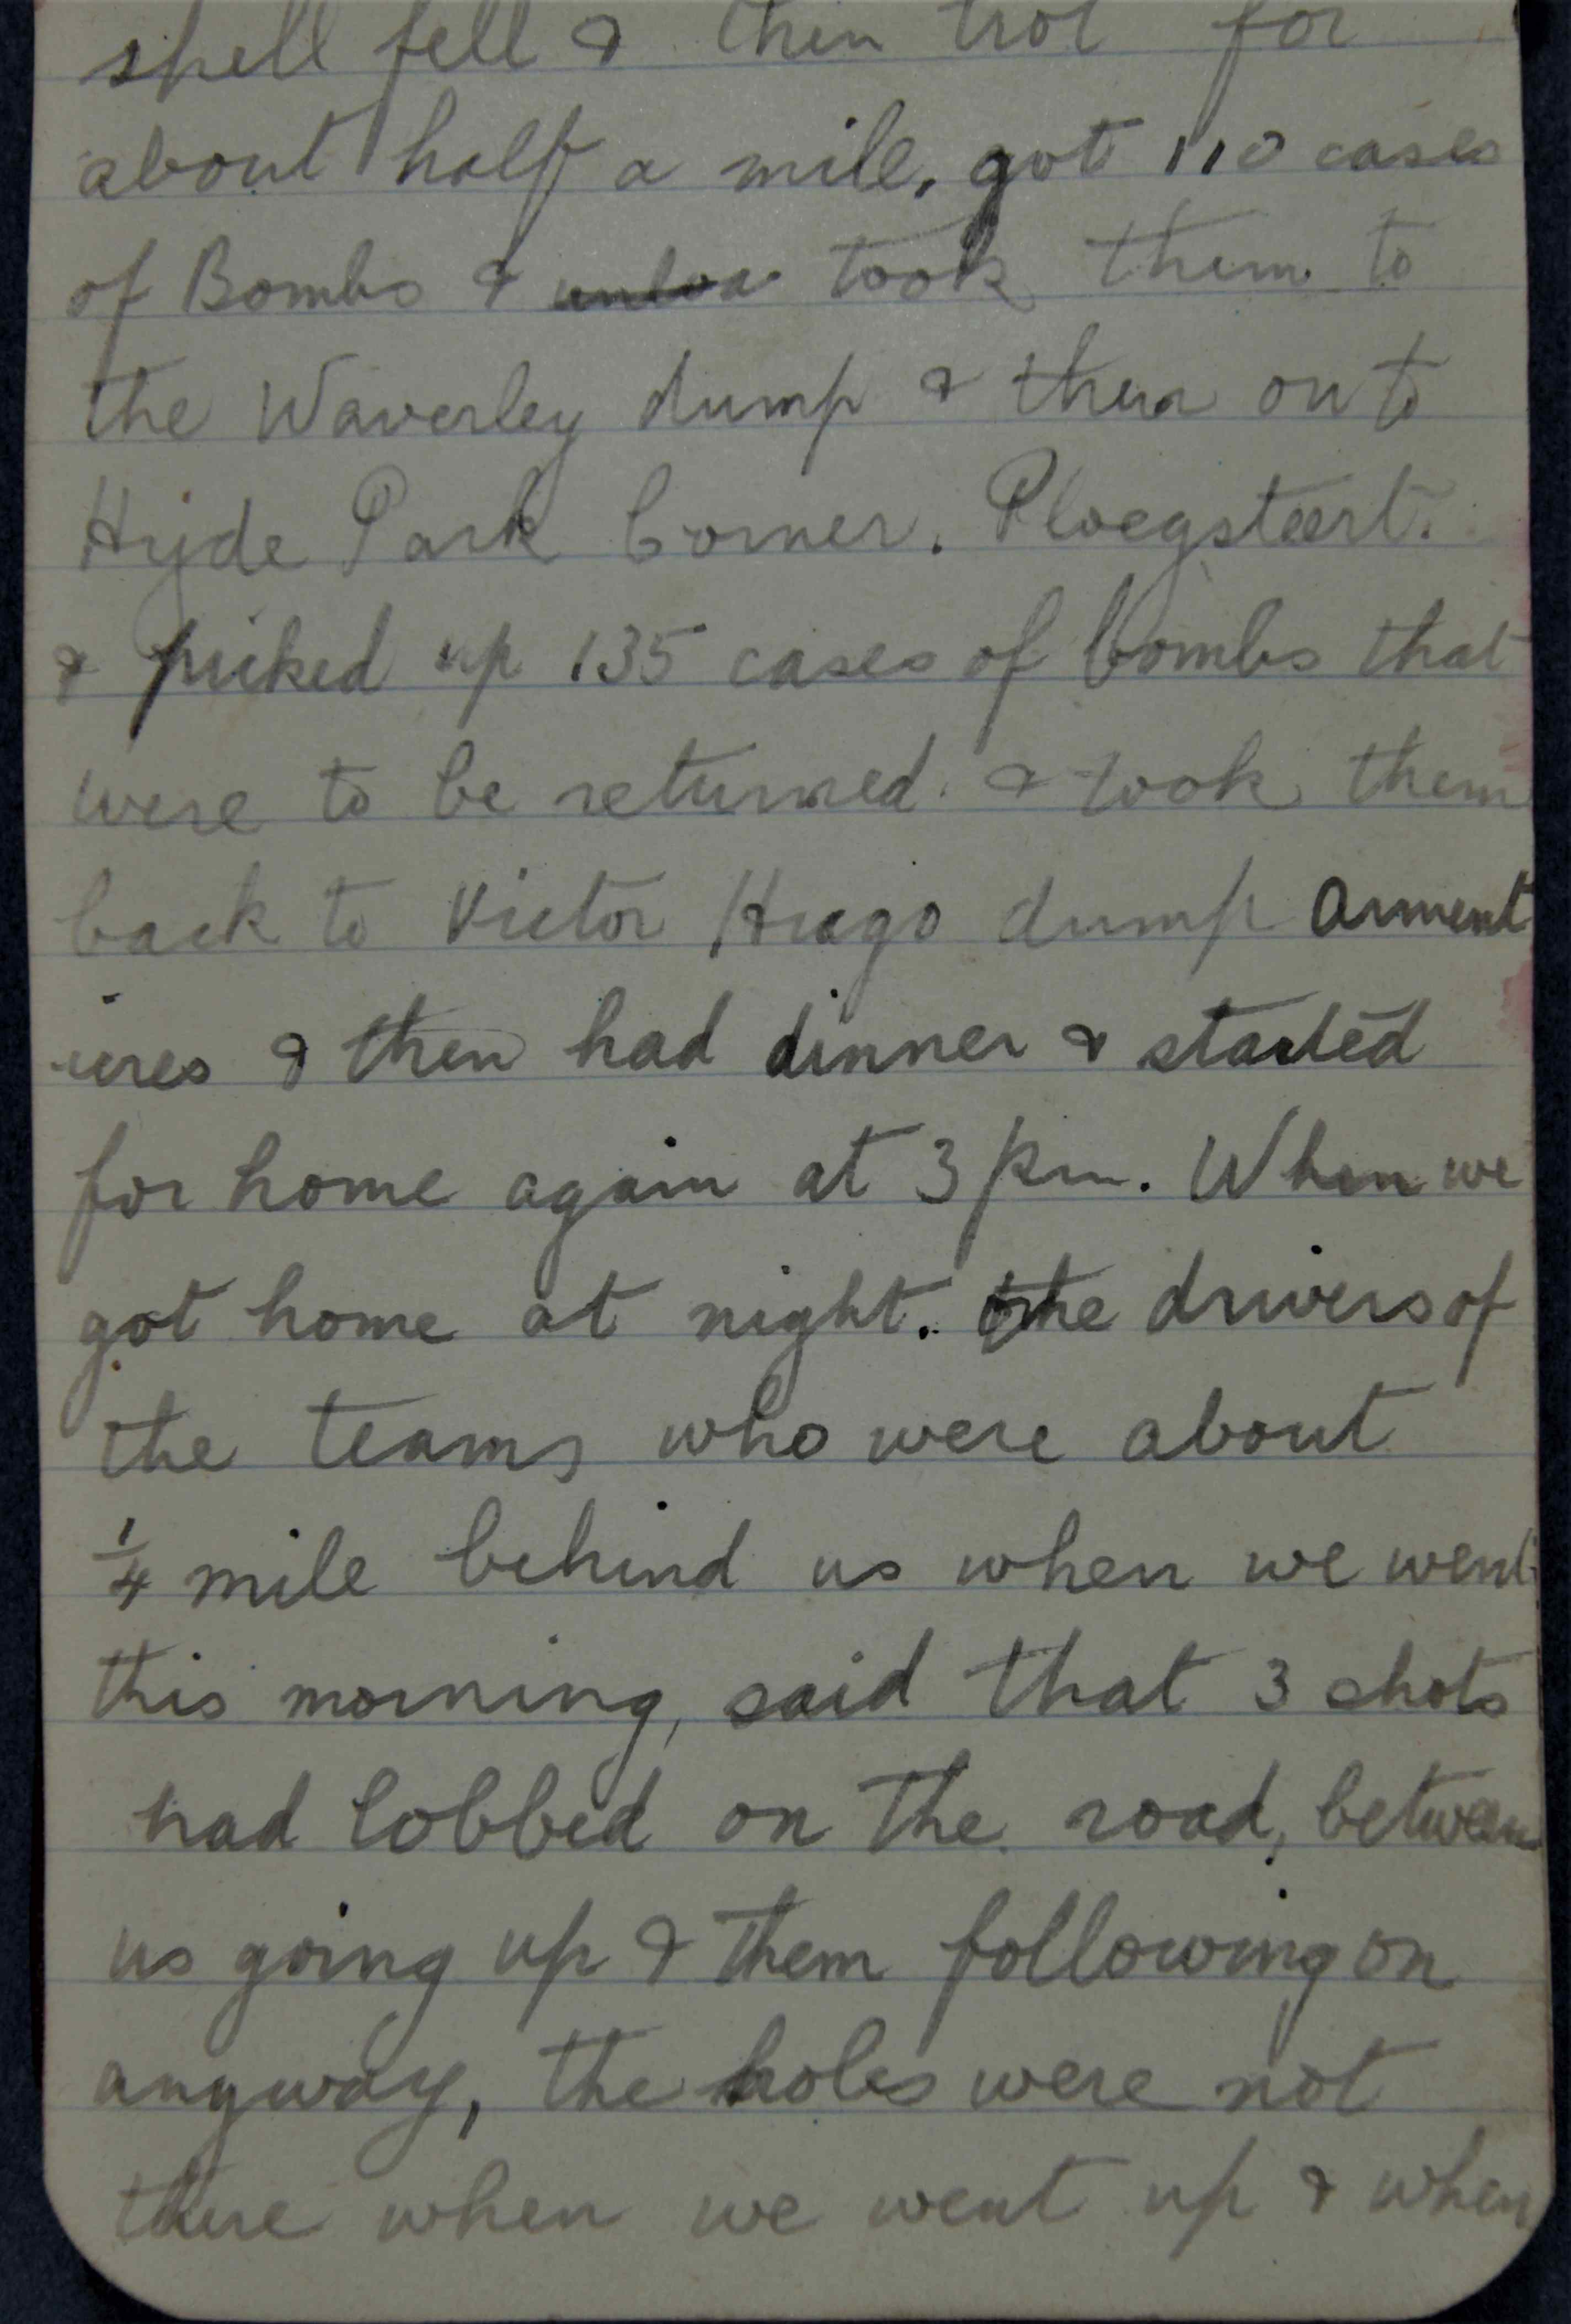 shell fell & then trot for
about half a mile, got 110 cases
of Bombs & unloa took them to
the Waverley dump & then on to
Hyde Park Corner. Ploegsteert.
& picked up 135 cases of bombs that
were to be returned. & took them
back to Victor Hugo dump Arment
ieres & then had dinner & started
for home again at 3 pm. When we
got home at night. the drivers of
the teams who were about
1/4 mile behind us when we went
this morning, said that 3 shots
had lobbed on the road, between
us going up & them following on
anyway, the holes were not
there when we went up & when